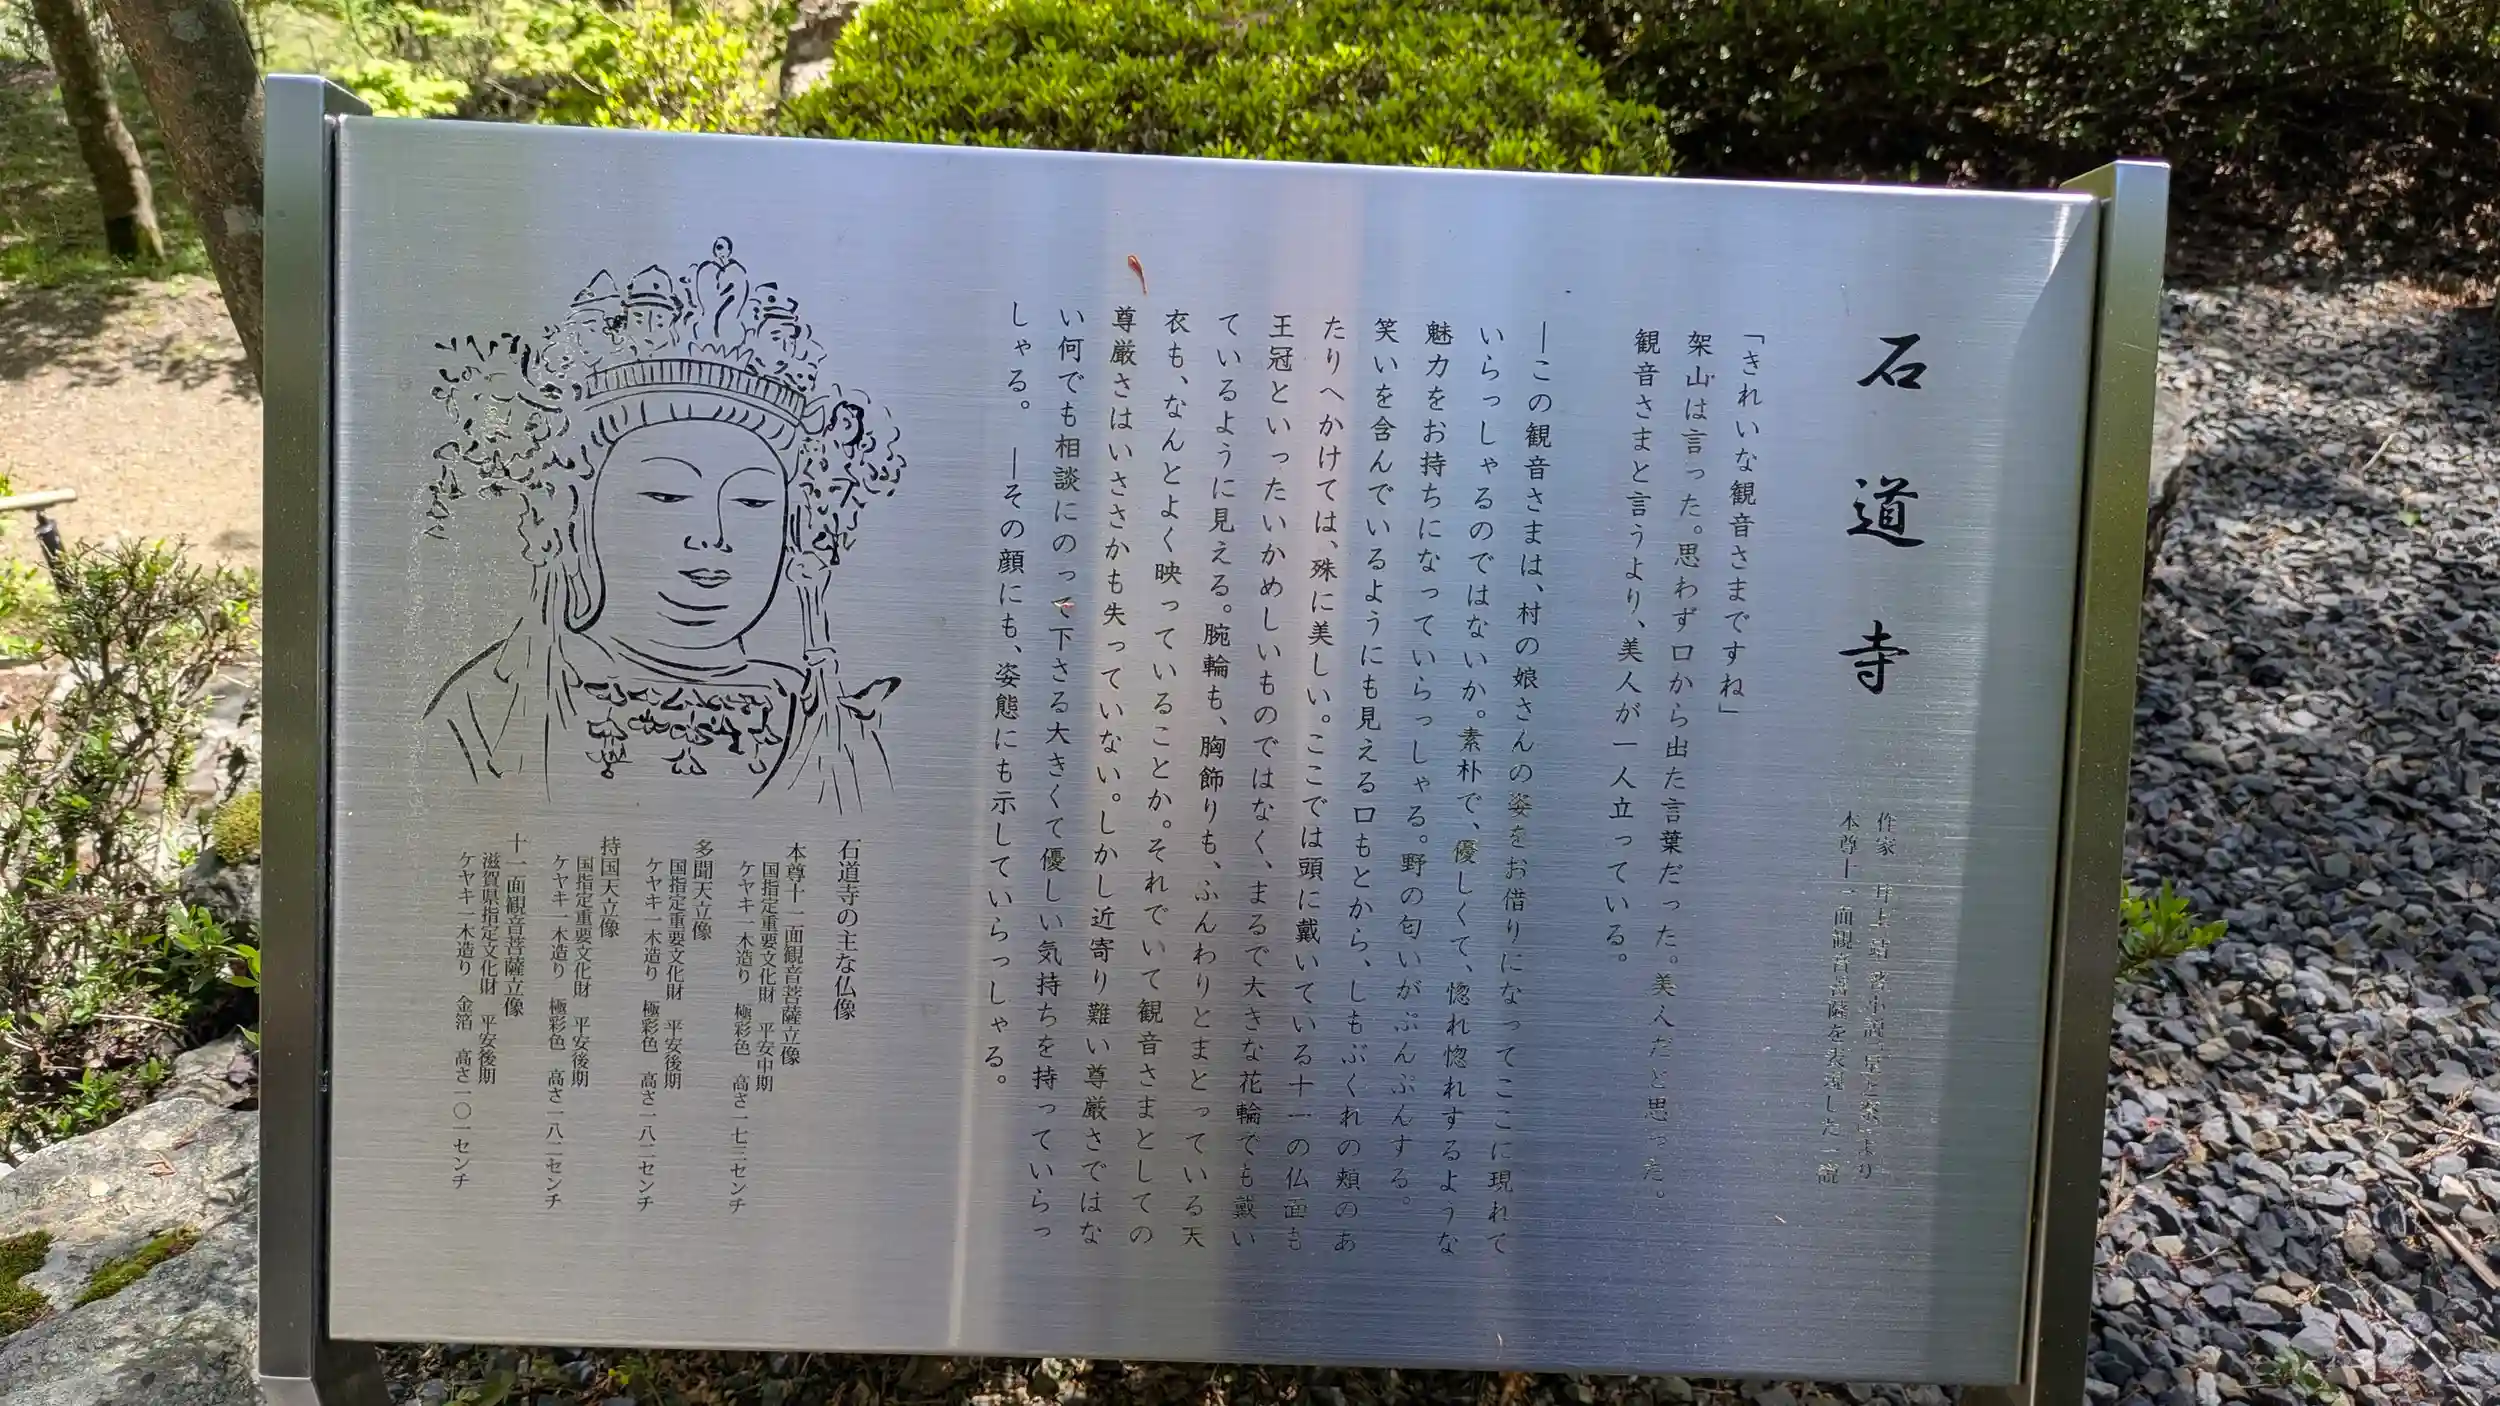 石道寺
作家 井上 靖 著 小説「星と祭」より
本尊十一面観音菩薩を表現した一説
「きれいな観音さまですね」
架山は言った。思わず口から出た言葉だった。美人だと思った。
観音さまと言うより、美人が一人立っている。
―この観音さまは、村の娘さんの姿をお借りになってここに現れて
いらっしゃるのではないか。素朴で、優しくて、惚れ惚れするような
魅力をお持ちになっていらっしゃる。野の匂いがぷんぷんする。
笑いを含んでいるようにも見える口もとから、しもぶくれの頬のあ
たりへかけては、殊に美しい。ここでは頭に戴いている十一の仏面も
王冠といったいかめしいものではなく、まるで大きな花輪でも戴い
ているように見える。腕輪も、胸飾りも、ふんわりとまとっている天
衣も、なんとよく映っていることか。それでいて観音さまとしての
尊厳さはいささかも失っていない。しかし近寄り難い尊厳さではな
い何でも相談にのって下さる大きくて優しい気持ちを持っていらっ
しゃる。 ―その顔にも、姿態にも示していらっしゃる。
石道寺の主な仏像
本尊十一面観音菩薩立像
国指定重要文化財 平安中期
ケヤキ一木造り 極彩色 高さ一七三センチ
多聞天立像
国指定重要文化財 平安後期
ケヤキ一木造り 極彩色 高さ一八二センチ
持国天立像
国指定重要文化財 平安後期
ケヤキ一木造り 極彩色 高さ一八二センチ
十一面観音菩薩立像
滋賀県指定文化財 平安後期
ケヤキ一木造り 金箔 高さ一〇一センチ